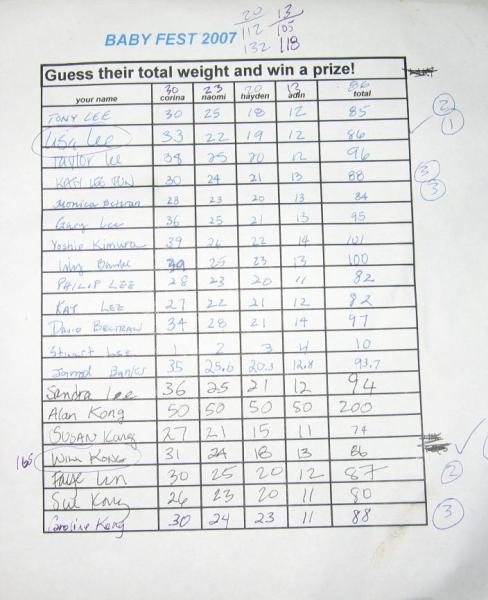 20 13
112 105
132 118
BABY FEST 2007
Guess their total weight and win a prize!
30 23 20 13 86
your name corina naomi hayden adin total
TONY LEE 30 25 18 12 85
Lisa Lee 33 22 19 12 86
Taylor Lee 38 25 20 12 96
KATY LEE 30 24 21 13 88
Monica Beltran 28 23 20 13 84
Gary Lee 36 25 21 13 95
Yoshie Kimura 39 26 22 14 101
39 25 23 13 100
PHILIP LEE 28 23 20 11 82
KAY LEE 27 22 21 12 82
DAVID BELTRAN 34 28 21 14 97
Stuart Lee 1 2 3 4 10
Jarrod Banks 35 25.6 20.3 12.8 93.7
Sandra Lee 36 25 21 12 94
Alan Kong 50 50 50 50 200
SUSAN Kong 27 21 15 11 74
165 Will KONG 31 24 18 13 86
Faye Lin 30 25 20 12 87
Sue Kong 26 23 20 11 80
Caroline Kong 30 24 23 11 88
2
1
3
3
2
3